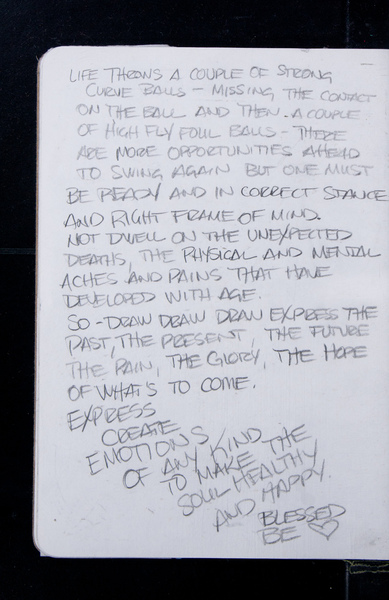 LIFE THROWS A COUPLE OF STRONG
CURVE BALLS - MISSING THE CONTACT
ON THE BALL AND THEN. A COUPLE
OF HIGH FLY FOUL BALLS - THERE
ARE MORE OPPORTUNITIES AHEAD
TO SWING AGAIN BUT ONE MUST
BE READY AND IN CORRECT STANCE
AND RIGHT FRAME OF MIND.
NOT DWELL ON THE UNEXPECTED
DEATHS, THE PHYSICAL AND MENTAL
ACHES AND PAINS THAT HAVE
DEVELOPED WITH AGE.
SO - DRAW DRAW DRAW EXPRESS THE
PAST, THE PRESENT, THE FUTURE
THE PAIN, THE GLORY, THE HOPE
OF WHAT'S TO COME.
EXPRESS
CREATE
EMOTIONS
OF ANY KIND
TO MAKE THE
SOUL HEALTHY
AND HAPPY.
BLESSED
BE ♡